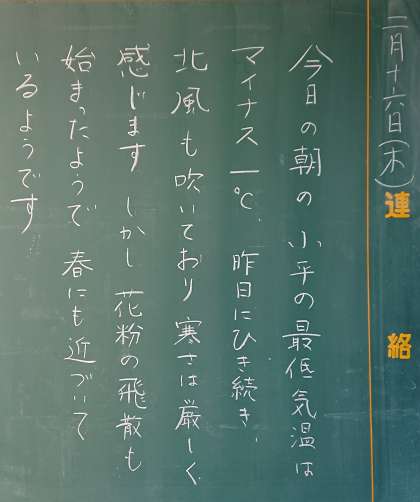 二月十六日(木)
連絡
今日の朝の小平の最低気温は
マイナス一℃、昨日にひき続き、
北風も吹いており寒さは厳しく
感じます しかし花粉の飛散も
始まったようで 春にも近づいて
いるようです……